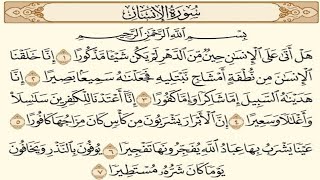 سُورَةُ الْإِنسَانِ
بِسْمِ اللَّهِ الرَّحْمَٰنِ الرَّحِيمِ
هَلْ أَتَىٰ عَلَى الْإِنسَٰنِ حِينٌ مِّنَ الدَّهْرِ لَمْ يَكُن شَيْـًٔا مَّذْكُورًا ١ إِنَّا خَلَقْنَا
الْإِنسَٰنَ مِن نُّطْفَةٍ أَمْشَاجٍ نَّبْتَلِيهِ فَجَعَلْنَٰهُ سَمِيعًۢا بَصِيرًا ٢ إِنَّا
هَدَيْنَٰهُ السَّبِيلَ إِمَّا شَاكِرًا وَإِمَّا كَفُورًا ٣ إِنَّا أَعْتَدْنَا لِلْكَٰفِرِينَ سَلَٰسِلَا۟
وَأَغْلَٰلًا وَسَعِيرًا ٤ إِنَّ الْأَبْرَارَ يَشْرَبُونَ مِن كَأْسٍ كَانَ مِزَاجُهَا كَافُورًا ٥
عَيْنًا يَشْرَبُ بِهَا عِبَادُ اللَّهِ يُفَجِّرُونَهَا تَفْجِيرًا ٦ يُوفُونَ بِالنَّذْرِ وَيَخَافُونَ
يَوْمًا كَانَ شَرُّهُۥ مُسْتَطِيرًا ٧